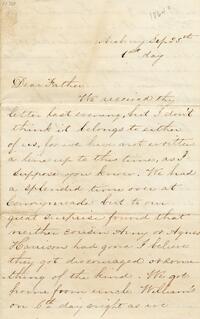 1864
Sep. 25th
1st day
Dear Father,
We received the
letter last evening, but I don't
think it belongs to either
of us, for we have not written
a line up to this time, as I
suppose you know. We had
a splendid time over at
but to our
great surprise found that
neither cousin Amy or Agnes
Harrison had gone. I believe
they got discouraged or some
thing of the kind. We got
home from uncle William's
on 6th day night as we